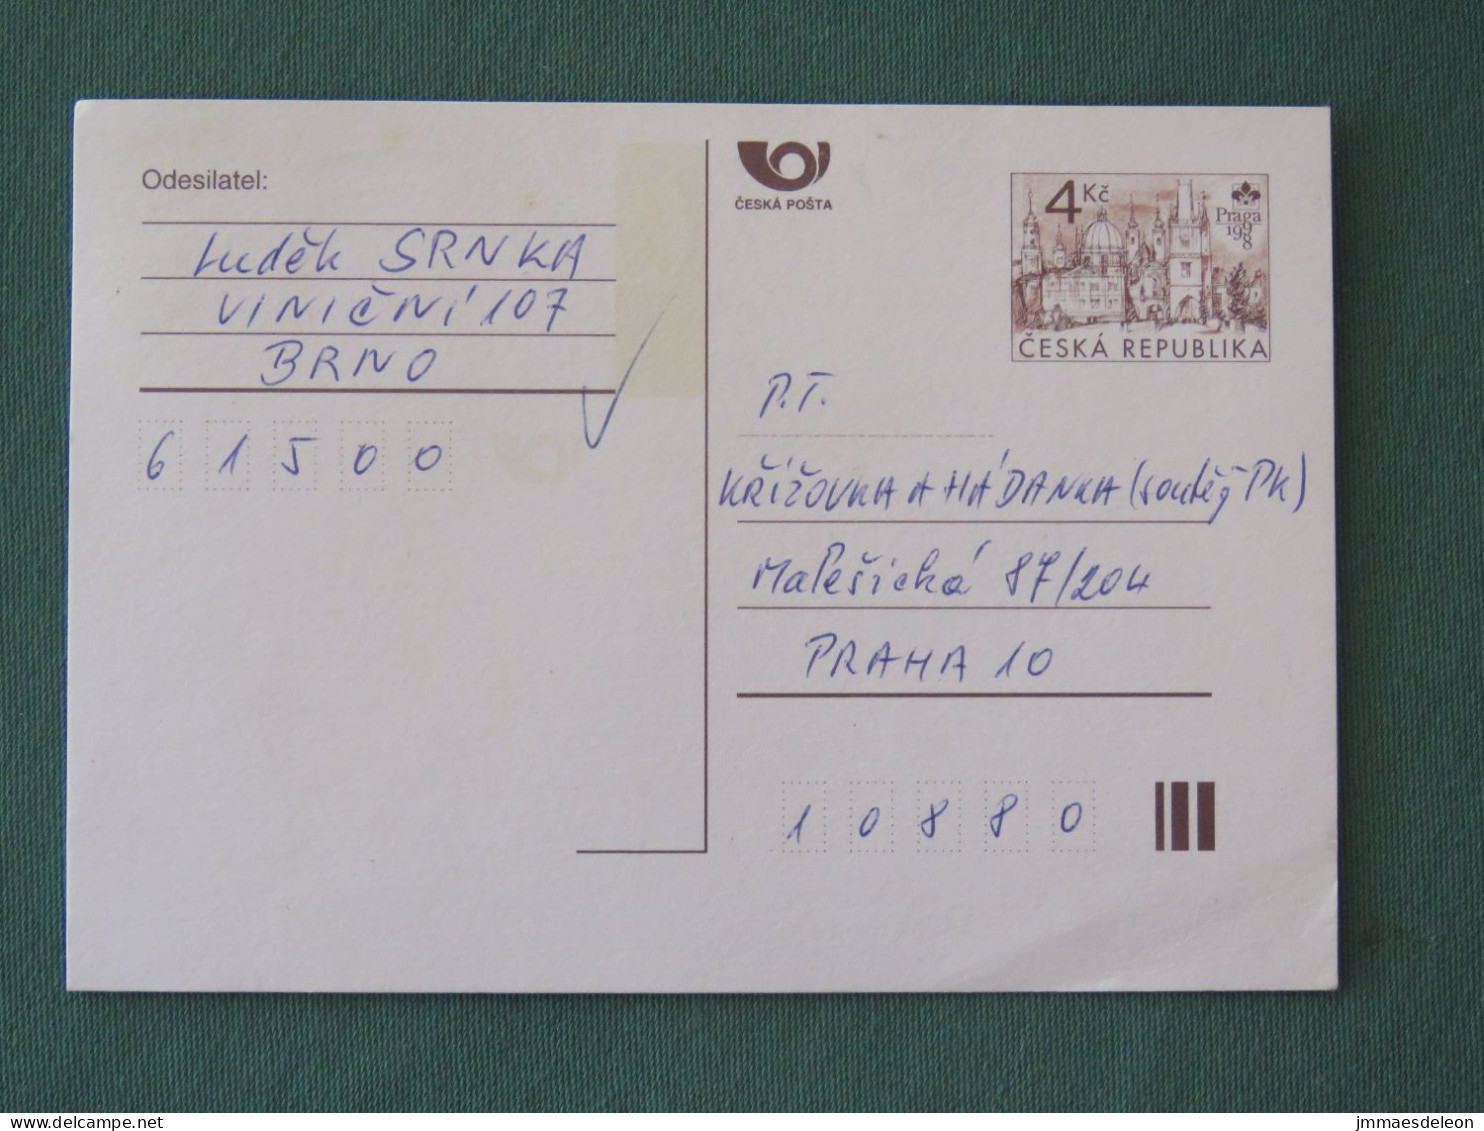 Odesilatel:
Luděk SRNKA
VINIČNÍ 107
BRNO
6 1 5 0 0
ČESKÁ POŠTA
4 Kč
Praga
1998
ČESKÁ REPUBLIKA
P.T.
KŘÍŽOVKA A HÁDANKA (soutěž PK)
Malešická 87/204
PRAHA 10
1 0 8 8 0
www.delcampe.net
jmmaesdeleon